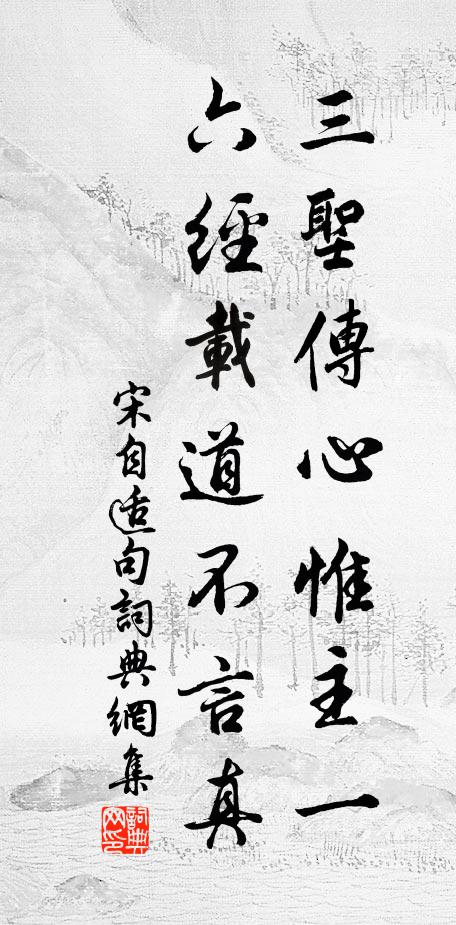 三聖傳心惟主一
六經載道不言真
宋自逜句詞典網集
詞典网印